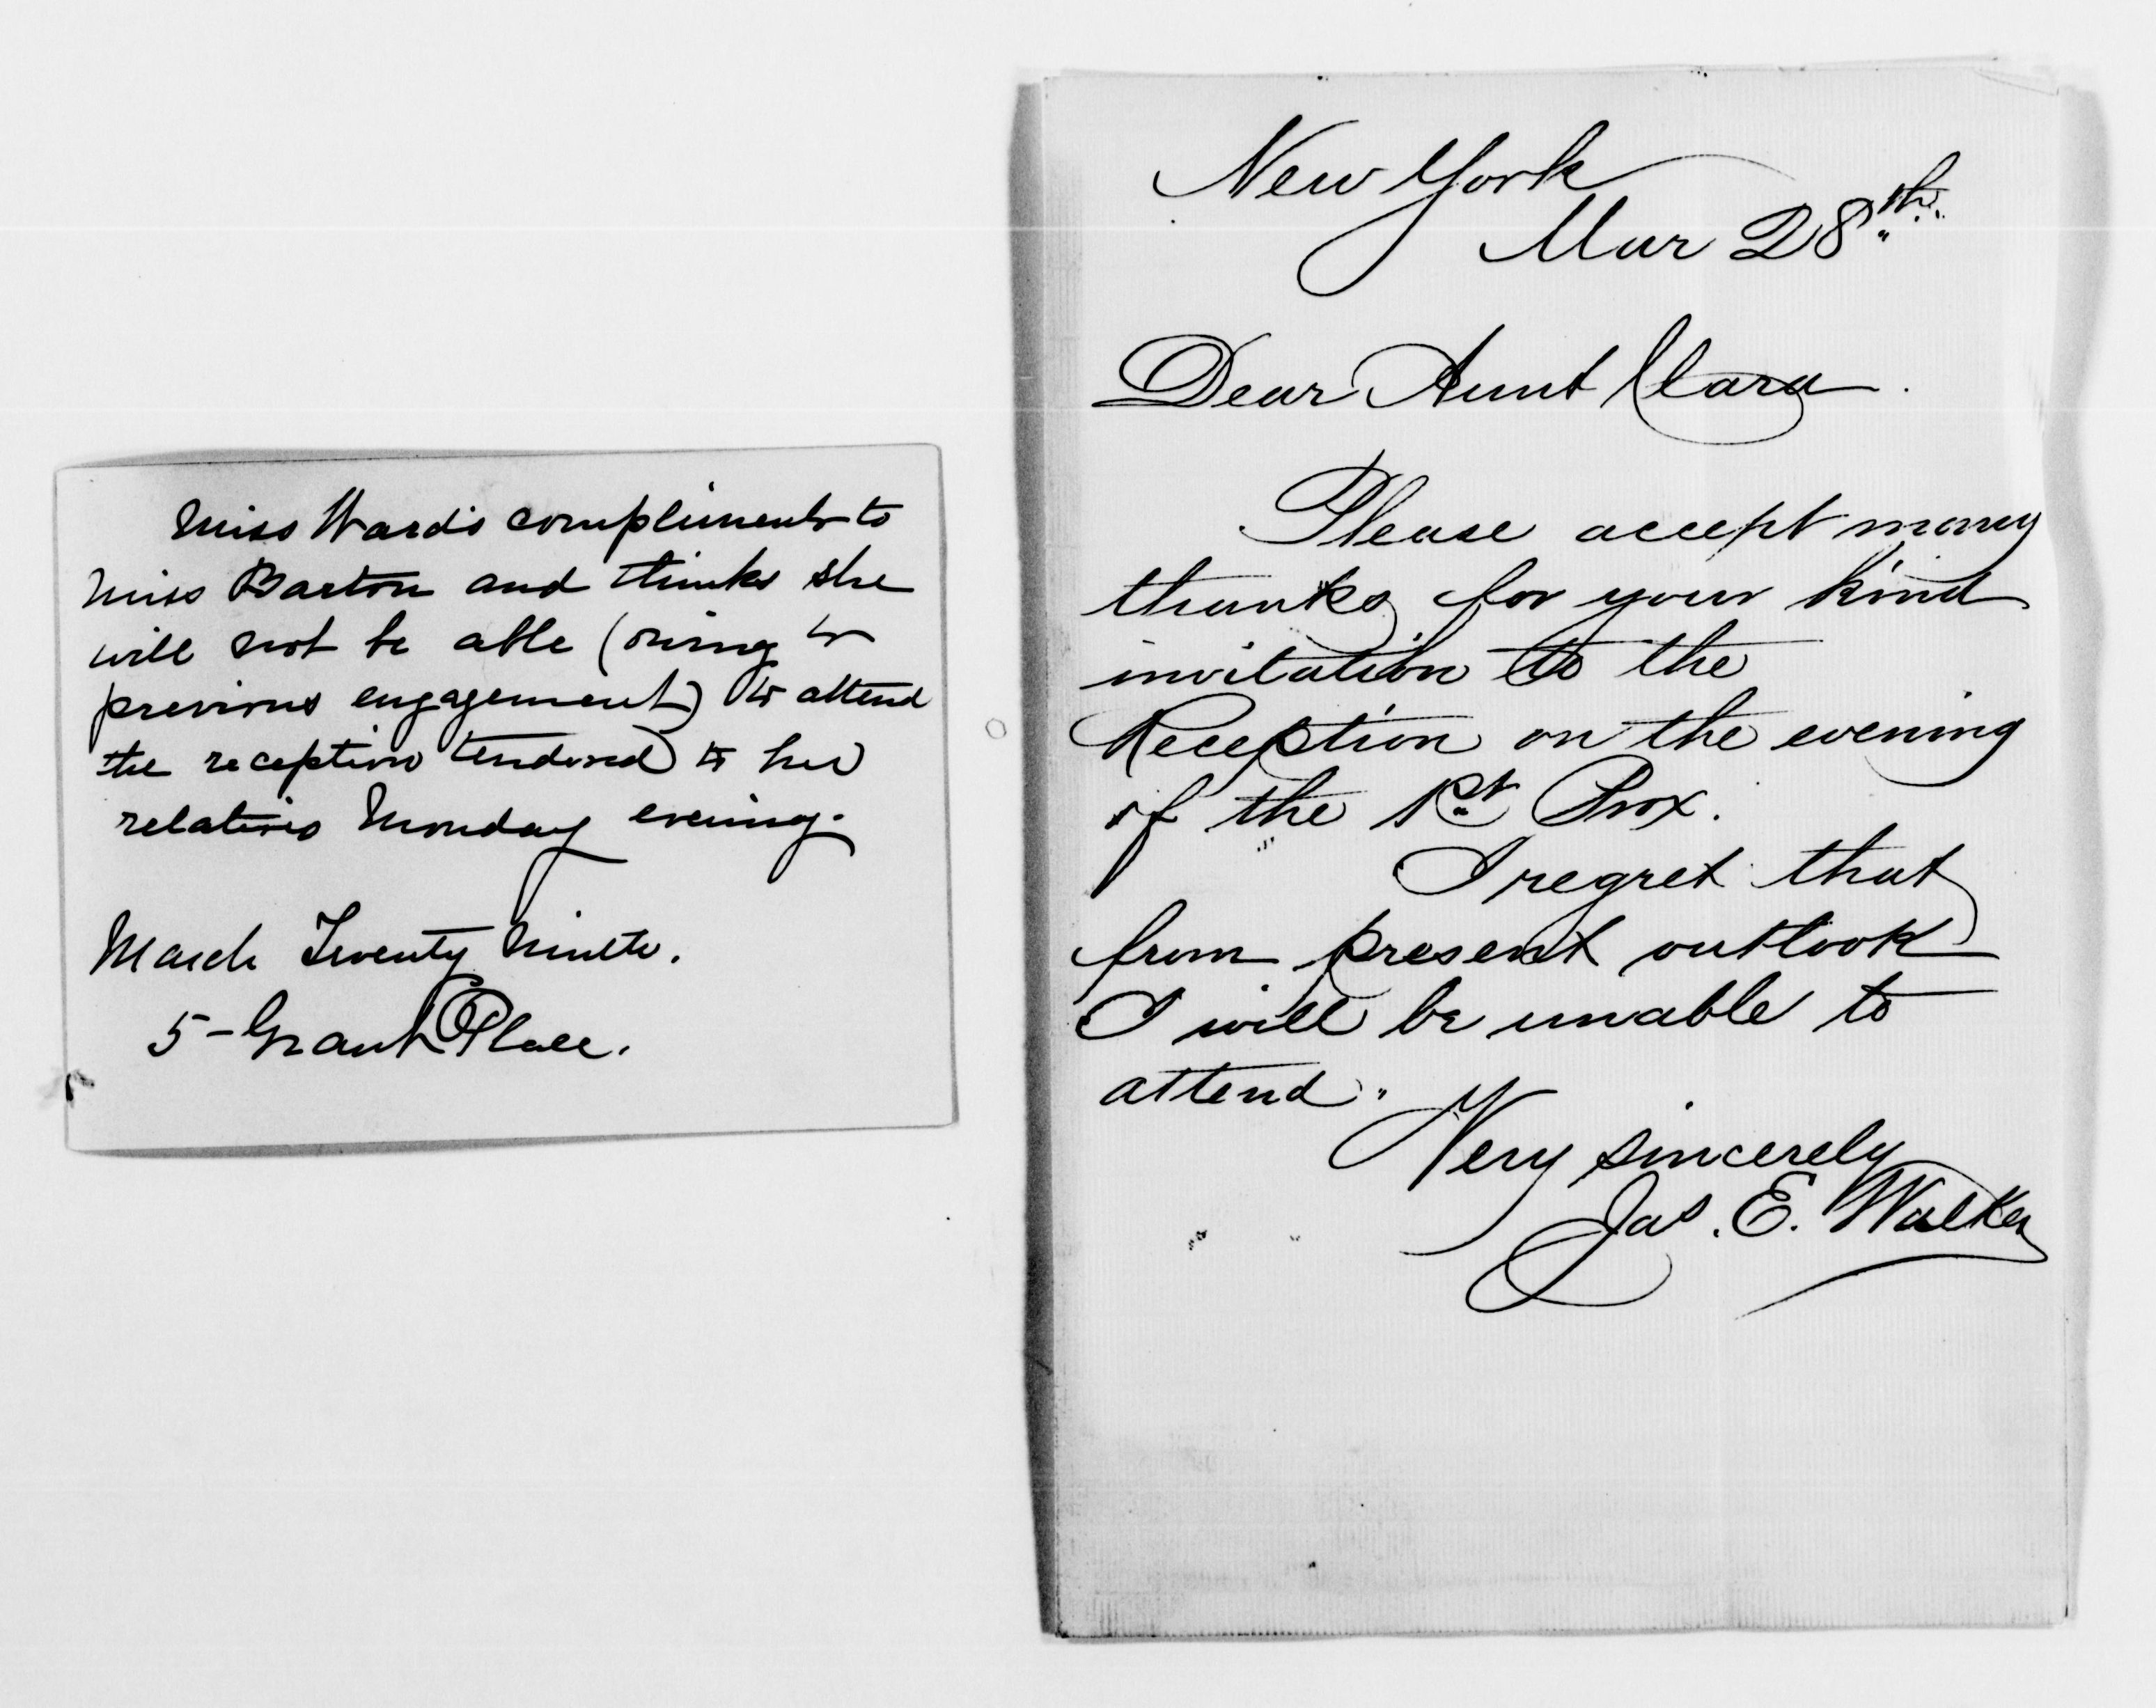 Miss Ward's compliments to
Miss Barton and thinks she
will not be able (owing to
previous engagement) to attend
the reception tendered to her
relatives Monday evening.
March Twenty Ninth.
5 - Grant Place.
New York
Mar 28th.
Dear Aunt Clara.
Please accept many
thanks for your kind
invitation to the
Reception on the evening
of the 1st Prox.
I regret that
from present outlook
I will be unable to
attend.
Very sincerely
Jas. E. Walker